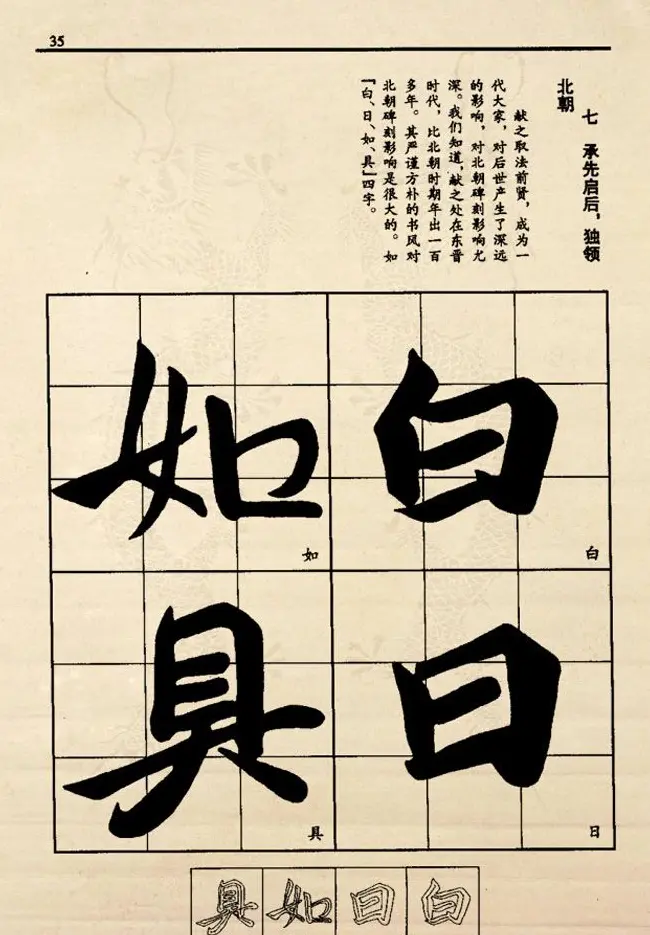 35
七 承先启后，独领
北朝
献之取法前贤，成为一
代大家，对后世产生了深远
的影响，对北朝碑刻影响尤
深。我们知道，献之处在东晋
时代，比北朝时期年出一百
多年。其严谨方朴的书风对
北朝碑刻影响是很大的。如
「白、日、如、具」四字。
白
白
日
日
如
如
具
具
具 如 日 白